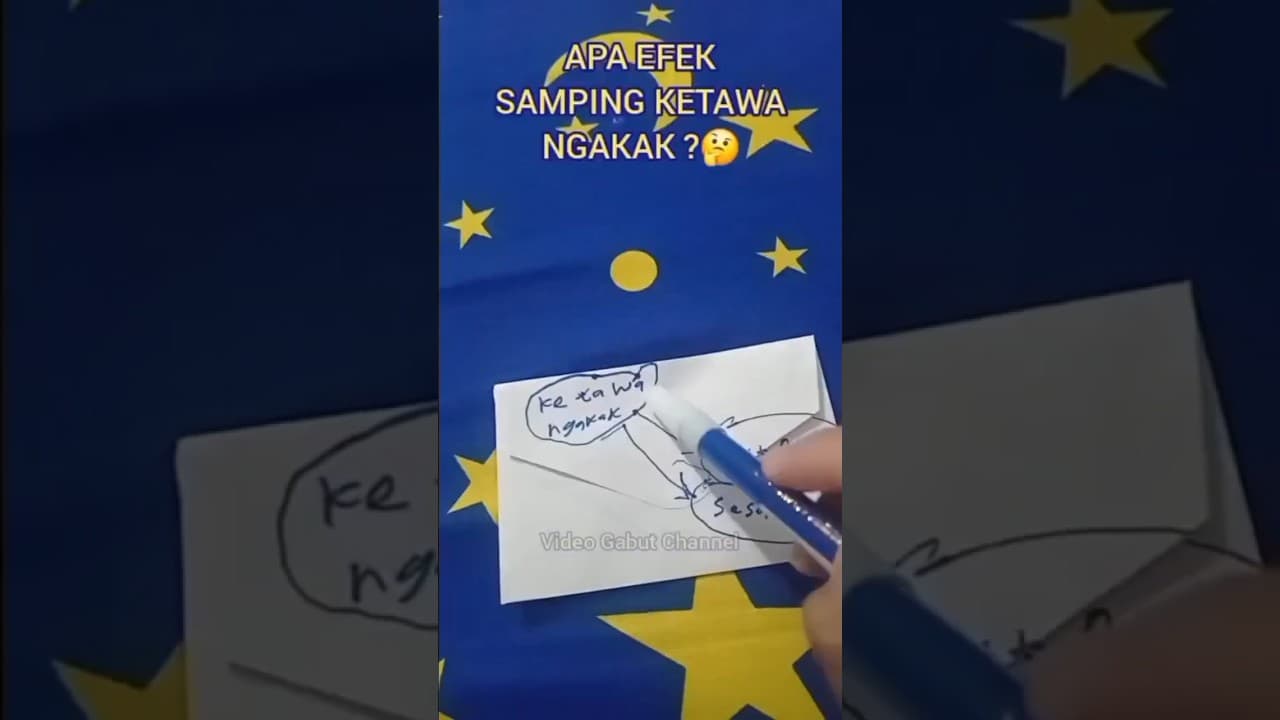 APA EFEK
SAMPING KETAWA
NGAKAK ?🤔
ke tawa
ngakak
Video Gabut Channel
ke